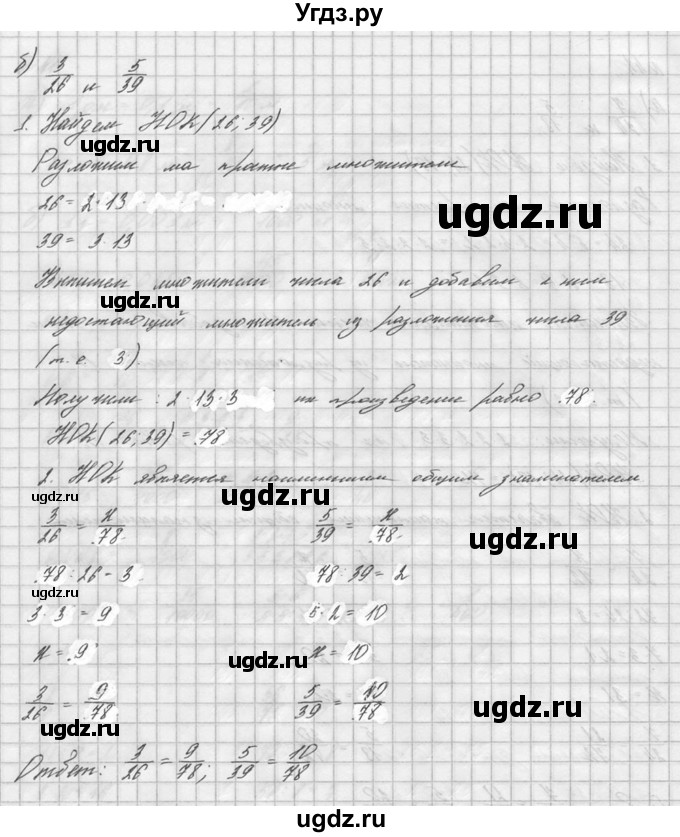 Угдз.ру
б) 3/26 и 5/39
1. Найдем НОК(26; 39)
Разложим на простые множители
26 = 2·13
39 = 3·13
Выпишем множители числа 26 и добавим к ним
недостающий множитель из разложения числа 39
(т.е. 3)
Получили: 2·13·3 их произведение равно 78.
НОК(26; 39) = 78
2. НОК является наименьшим общим знаменателем
3/26 = x/78 5/39 = x/78
78 : 26 = 3 78 : 39 = 2
3·3 = 9 5·2 = 10
x = 9 x = 10
3/26 = 9/78 5/39 = 10/78
Ответ: 3/26 = 9/78; 5/39 = 10/78
ugdz.ru
ugdz.ru
ugdz.ru
ugdz.ru
ugdz.ru
ugdz.ru
ugdz.ru
ugdz.ru
ugdz.ru
ugdz.ru
ugdz.ru
ugdz.ru